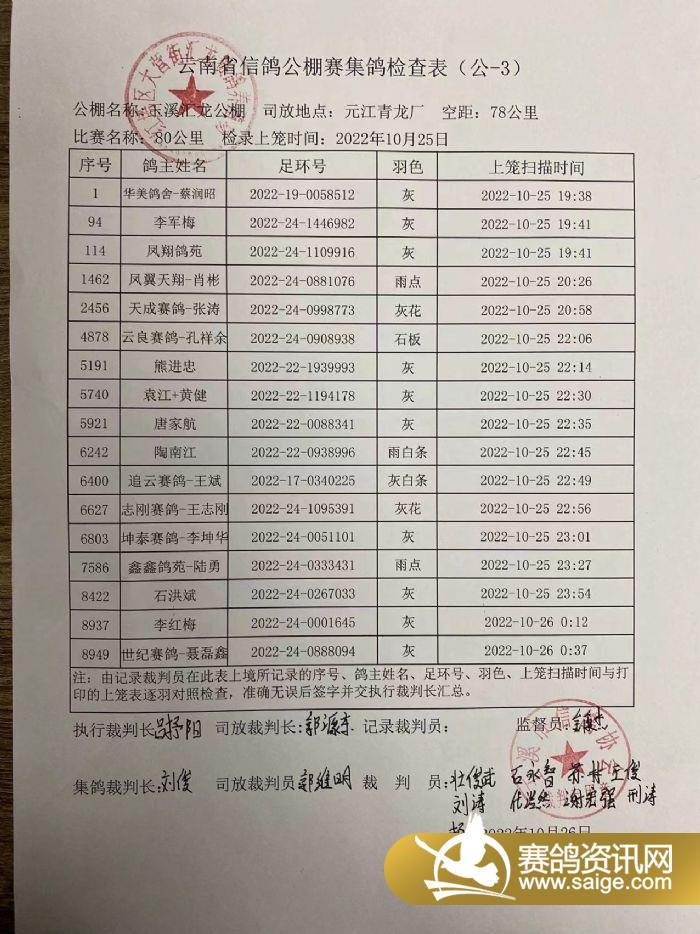 云南省信鸽公棚赛集鸽检查表（公-3）
公棚名称：玉溪汇龙公棚 司放地点：元江青龙厂 空距：78公里
比赛名称：80公里 检录上笼时间：2022年10月25日
序号 鸽主姓名 足环号 羽色 上笼扫描时间
1 华美鸽舍-蔡润昭 2022-19-0058512 灰 2022-10-25 19:38
94 李军梅 2022-24-1446982 灰 2022-10-25 19:41
114 凤翔鸽苑 2022-24-1109916 灰 2022-10-25 19:41
1462 凤翼天翔-肖彬 2022-24-0881076 雨点 2022-10-25 20:26
2456 天成赛鸽-张涛 2022-24-0998773 灰花 2022-10-25 20:58
4878 云良赛鸽-孔祥余 2022-24-0908938 石板 2022-10-25 22:06
5191 熊进忠 2022-22-1939993 灰 2022-10-25 22:14
5740 袁江+黄健 2022-22-1194178 灰 2022-10-25 22:30
5921 唐家航 2022-22-0088341 灰 2022-10-25 22:35
6242 陶南江 2022-22-0938996 雨白条 2022-10-25 22:45
6400 追云赛鸽-王斌 2022-17-0340225 灰白条 2022-10-25 22:49
6627 志刚赛鸽-王志刚 2022-24-1095391 灰花 2022-10-25 22:56
6803 坤泰赛鸽-李坤华 2022-24-0051101 灰 2022-10-25 23:01
7586 鑫鑫鸽苑-陆勇 2022-24-0333431 雨点 2022-10-25 23:27
8422 石洪斌 2022-24-0267033 灰 2022-10-25 23:54
8937 李红梅 2022-24-0001645 灰 2022-10-26 0:12
8949 世纪赛鸽-聂磊鑫 2022-24-0888094 灰 2022-10-26 0:37
注：由记录裁判员在此表上境所记录的序号、鸽主姓名、足环号、羽色、上笼扫描时间与打
印的上笼表逐羽对照检查，准确无误后签字并交执行裁判长汇总。
执行裁判长：吕抒阳 司放裁判长：郭源李 记录裁判员： 监督员：
集鸽裁判长：刘俊 司放裁判员：郭维明 裁 判 员：杜俊武 石永智 苏村 王俊
刘涛 谢宏强 邢涛
2022年10月26日
赛鸽资讯网
www.saige.com